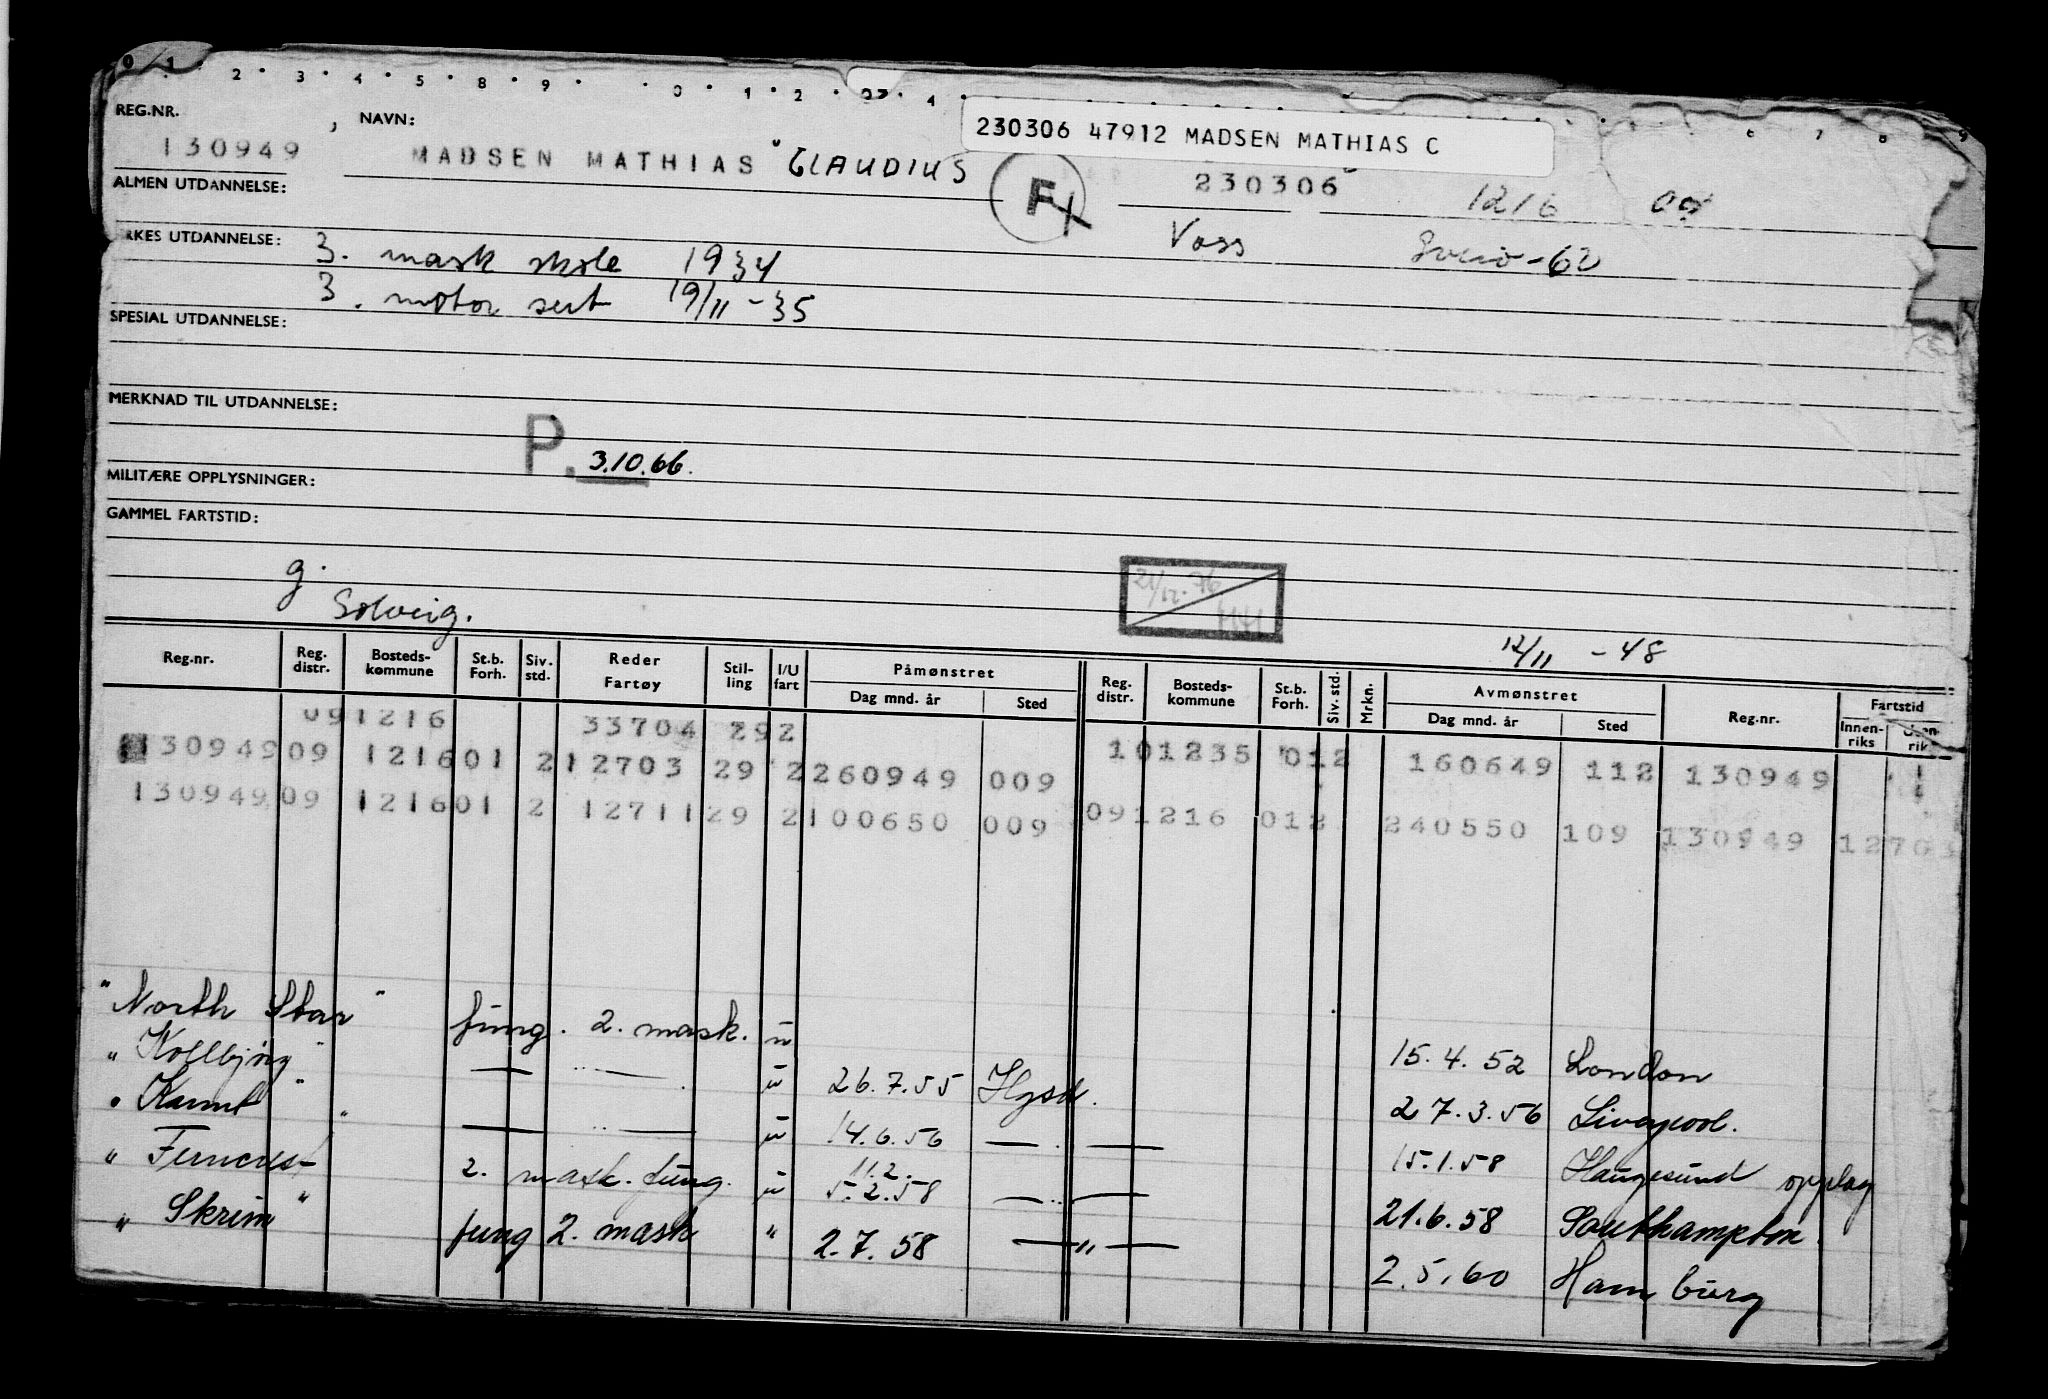 0 1 . 2 . 3 . 4 . 5 . 8 . 9 . . 0 . 1 . 2 . 4 . 6 7 8 9
230306 47912 MADSEN MATHIAS C
REG.NR. , NAVN:
130949 MADSEN MATHIAS CLAUDIUS F 230306 1216 09
ALMEN UTDANNELSE:
Voss -60
RKES UTDANNELSE: 3. mask skole 1934
3. motor sert 19/11-35
SPESIAL UTDANNELSE:
MERKNAD TIL UTDANNELSE:
P. 3.10.66.
MILITÆRE OPPLYSNINGER:
GAMMEL FARTSTID:
g.
Solveig.
21/12-76
12/11 -48
Reg.nr. Reg. distr. Bosteds-kommune St.b. Forh. Siv. std. Reder Fartøy Stil-ling I/U fart Påmønstret Dag mnd. år Sted Reg. distr. Bosteds-kommune St.b. Forh. Siv. std. Mrkn. Avmønstret Dag mnd. år Sted Reg.nr. Fartstid Innen-riks Uten-riks
091216 33704 292
130949 09 1216 01 2 12703 29 2 260949 009 101235 012 160649 112 130949
130949 09 1216 01 2 12711 29 2 100650 009 091216 012 240550 109 130949 12703
"North Star" fung. 2. mask. u 15.4.52 London
"Kollbjørg" — " — u 26.7.55 Hgsd. 27.3.56 Liverpool.
"Karmt" — " — u 14.6.56 — " — 15.1.58 Haugesund opplag
"Ferncrest" 2. mask. fung. u 11.2. 5.2.58 — " — 21.6.58 Southampton.
"Skrim" fung 2. mask " 2.7.58 — " — 2.5.60 Hamburg